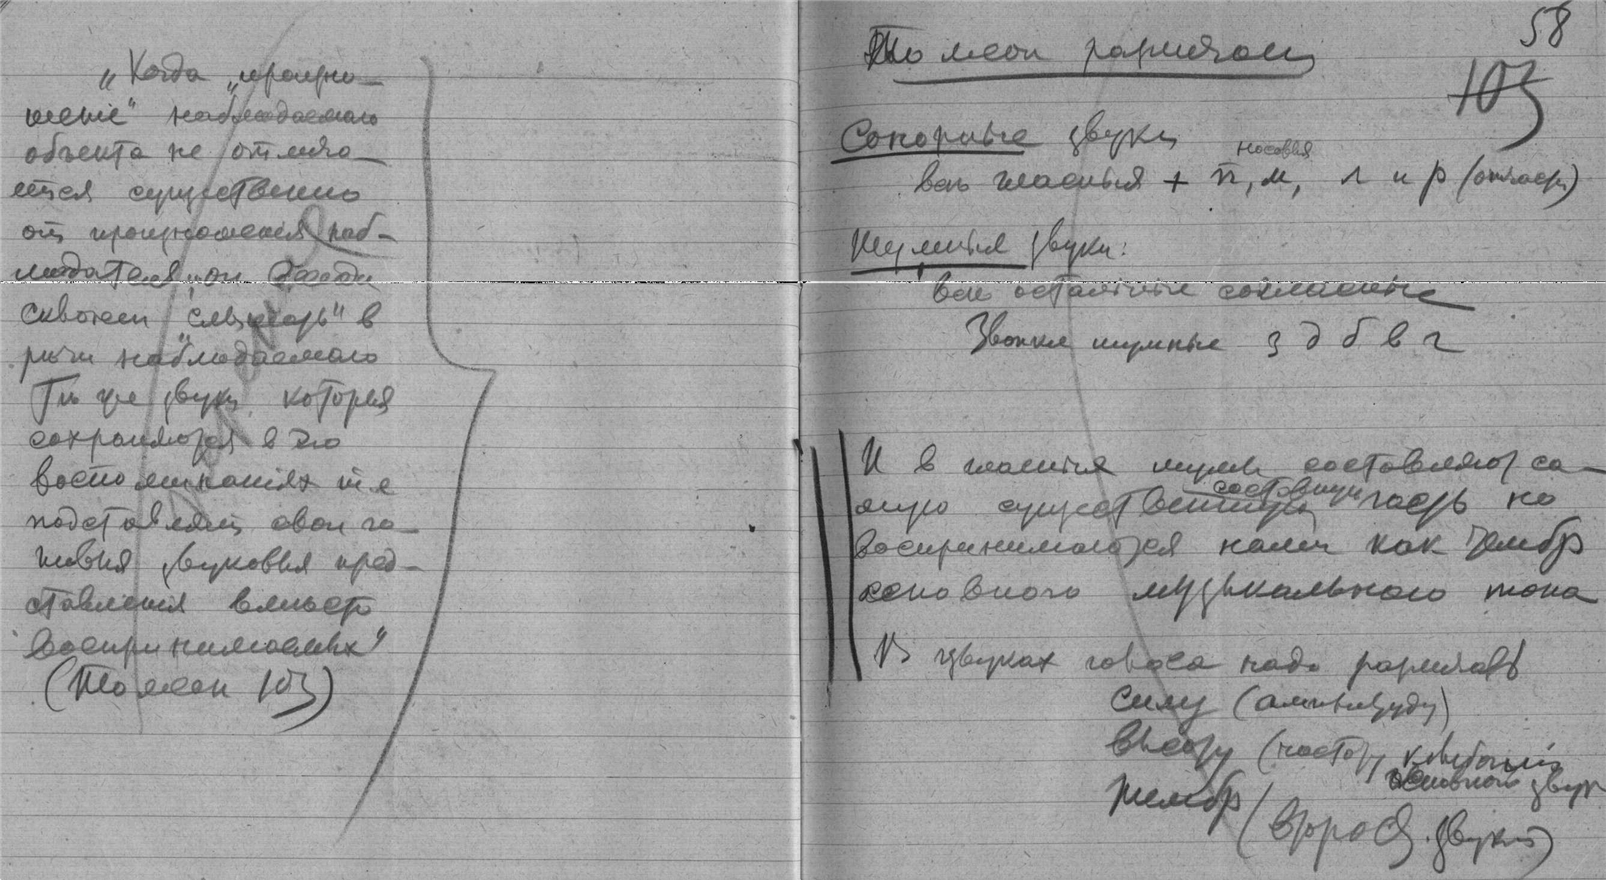 „Когда „произно-
шение" наблюдаемаго
объекта не отлича-
ется существенно
от произношения наб-
людателя он
сквозь в
речи наблюдаемаго
Те же звуки которыя
сохраняются в его
воспоминаниях т.е
подставляет свои го-
товыя звуковыя пред-
ставления вместо
воспринимаемых"
(Томсон 103)
58
Томсон различает
103
Сонорные звуки
носовыя
все гласныя + н, м, л и р (отчасти)
Шумныя звуки:
все остальные согласные
Звонкие шумные з д б в г
И в гласныя шумы составляют са-
мую существенную составную часть но
воспринимаются нами как тембр
основного музыкального тона
В звуках голоса надо различать
силу (амплитуду)
высоту (частоту колебаний
основного звук
тембр (второст. звуки)